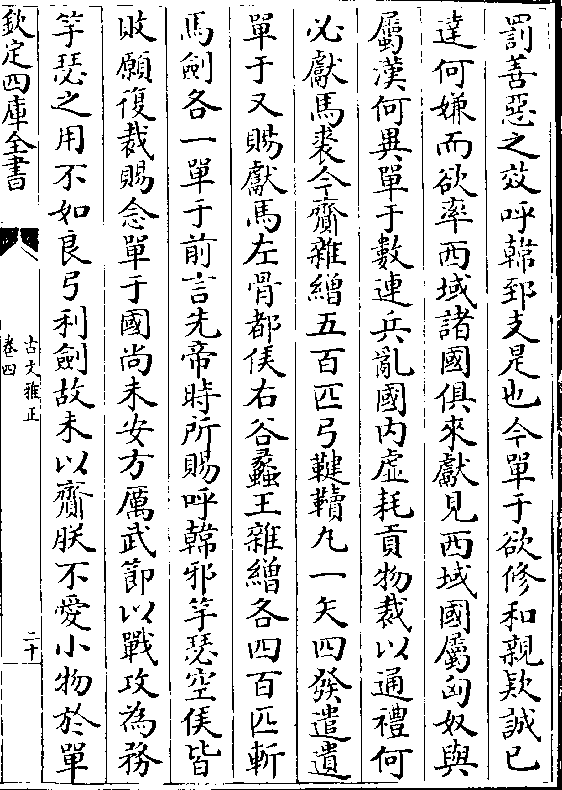 罰善惡之效呼韓郅支是也今單于欲修和親欵誠已
達何嫌而欲率西域諸國俱來獻見西域國屬匈奴與
屬漢何異單于數連兵亂國内虚耗貢物裁以通禮何
必獻馬裘今齎雜繒五百匹弓鞬韥丸一矢四發遣遺
單于又賜獻馬左骨都侯右谷蠡王雜繒各四百匹斬
馬劍各一單于前言先帝時所賜呼韓邪竽瑟空侯皆
敗願復裁賜念單于國尚未安方厲武節以戰攻為務
竽瑟之用不如良弓利劍故未以齎朕不愛小物於單
欽定四庫全書
古文雅正
卷四
二十